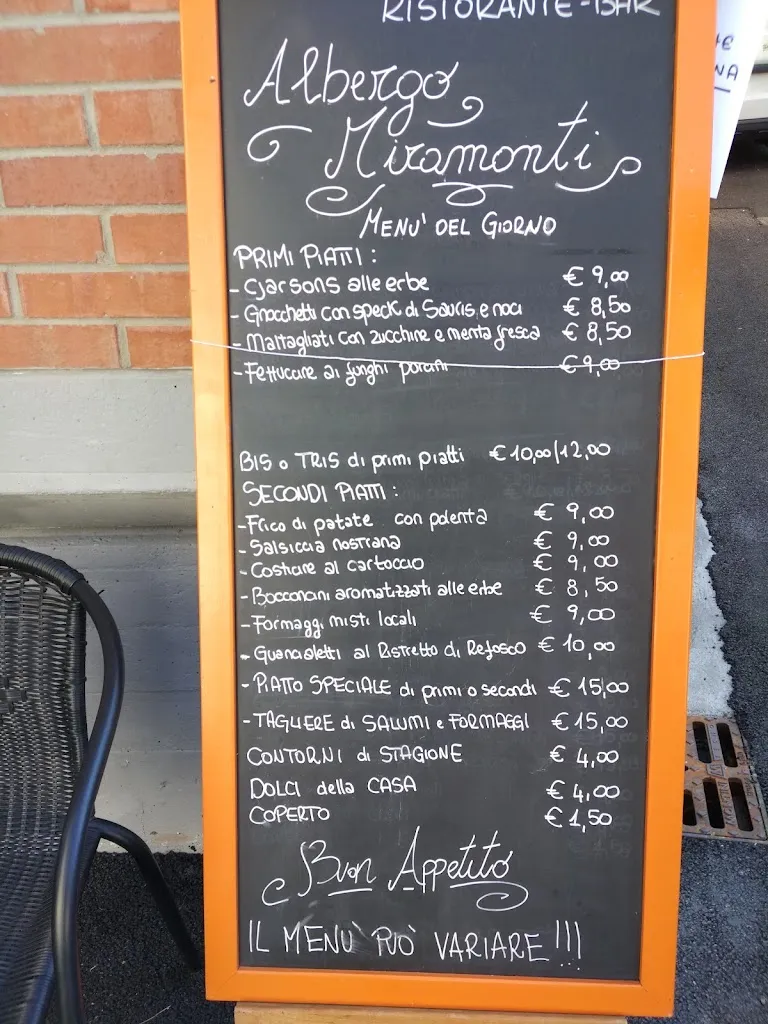 RISTORANTE-BAR
Albergo
Miramonti
MENU' DEL GIORNO
PRIMI PIATTI :
- Cjarsons alle erbe € 9,00
- Gnocchetti con speck di Sauris e noci € 8,50
- Maltagliati con zucchine e menta fresca € 8,50
- Fettuccine ai funghi porcini € 9,00
BIS o TRIS di primi piatti € 10,00/12,00
SECONDI PIATTI :
- Frico di patate con polenta € 9,00
- Salsiccia nostrana € 9,00
- Costine al cartoccio € 9,00
- Bocconcini aromatizzati alle erbe € 8,50
- Formaggi misti locali € 9,00
- Guancialetti al Ristretto di Refosco € 10,00
- PIATTO SPECIALE di primi o secondi € 15,00
- TAGLIERE di SALUMI e FORMAGGI € 15,00
CONTORNI di STAGIONE € 4,00
DOLCI della CASA € 4,00
COPERTO € 1,50
Buon Appetito
IL MENU' PUO' VARIARE !!!